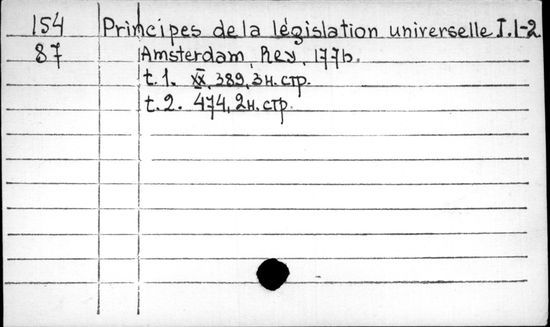 154 Principes de la législation universelle T.1-2
87 Amsterdam, Rey, 1776.
t.1. XX, 389, 3 н. стр.
t.2. 474, 2 н. стр.